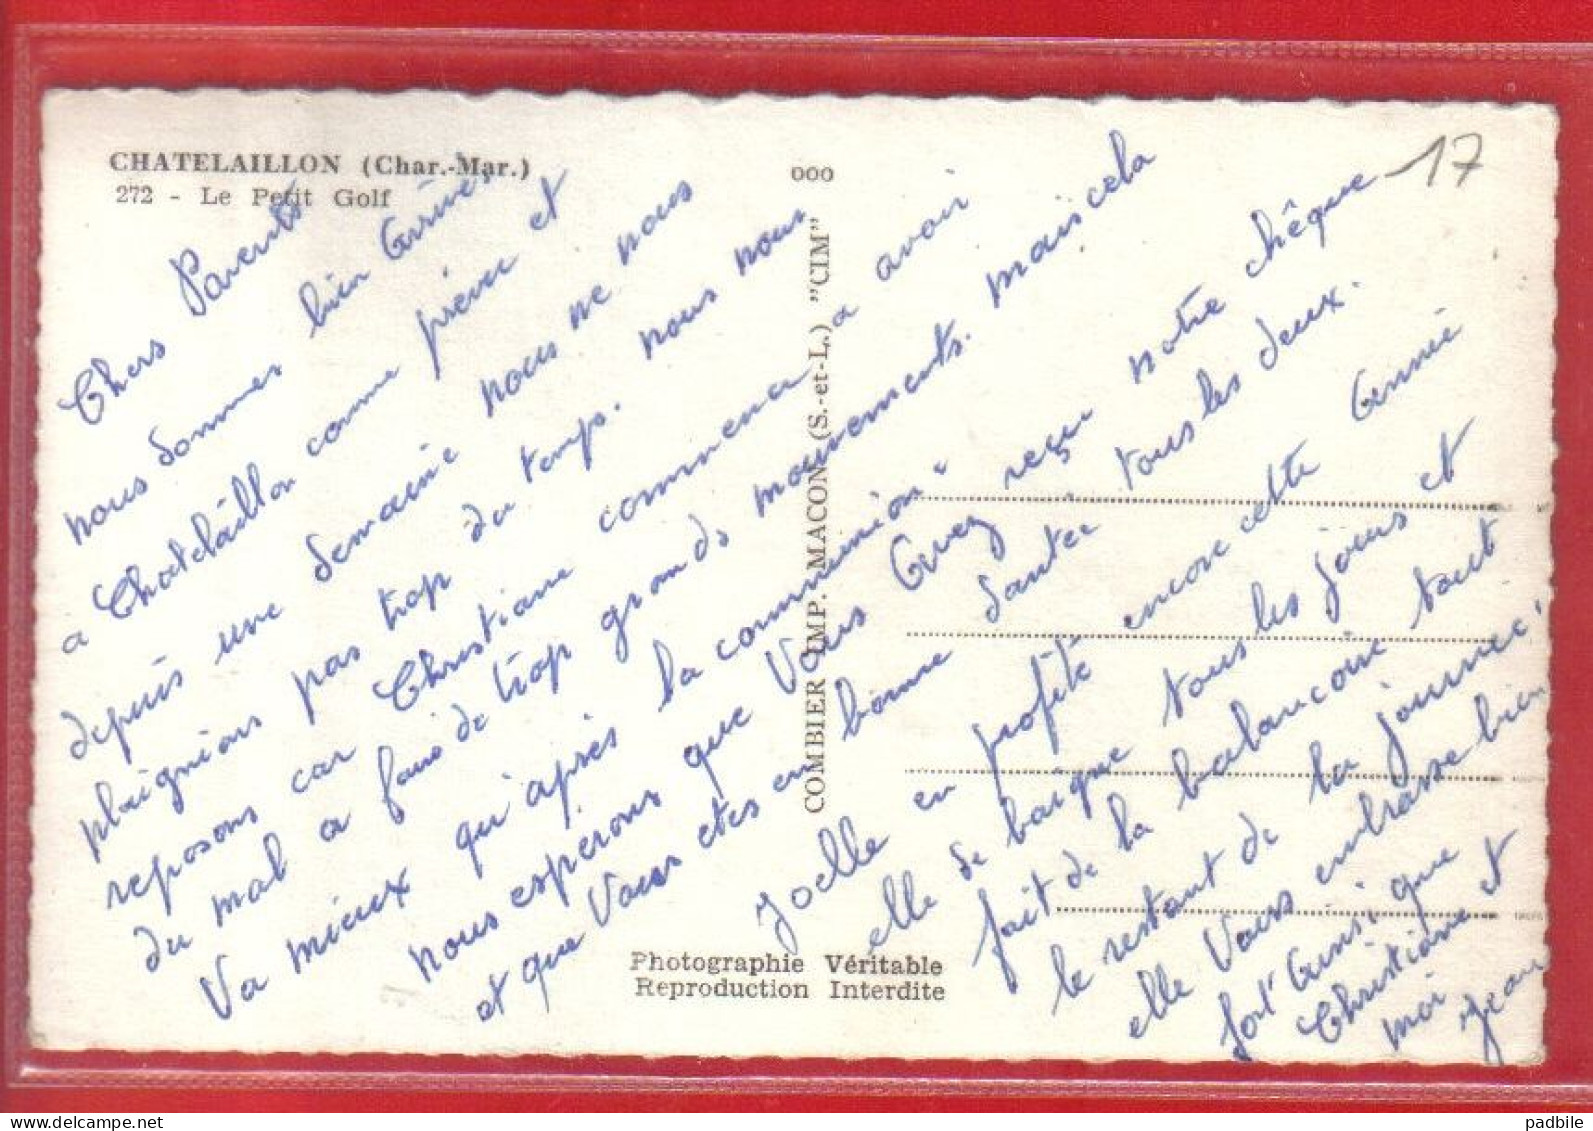 CHATELAILLON (Char.-Mar.)
272 - Le Petit Golf
000
17
Chers Parents
nous sommes bien Arrivés
a Chatelaillon comme prévu et
depuis une semaine nous ne nous
plaignions pas trop du temps. nous nous
reposons car Christiane commence a avoir
du mal a faire de trop grands mouvements. mais cela
Va mieux qu'après la communion"
nous espérons que Vous Avez reçu notre chêque
et que Vous etes en bonne santée tous les deux.
Joelle en profite encore cette Année
elle se baigne tous les jours et
fait de la balancoire tout
le restant de la journée!
elle Vous embrasse bien
fort Ainsi que
Christiane et
moi
Jean
COMBIER IMP. MACON (S.-et-L.) "CIM"
Photographie Véritable
Reproduction Interdite
padbile